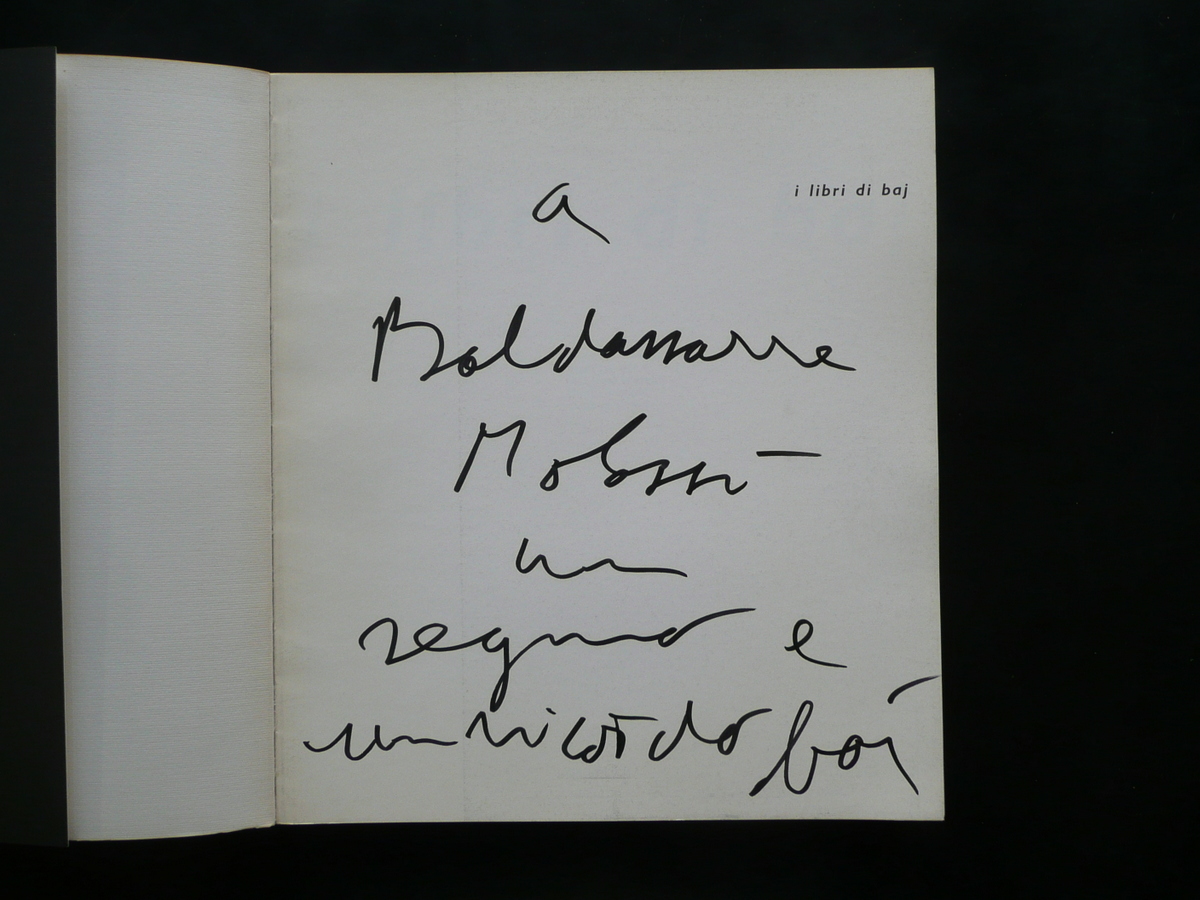 i libri di baj
a
Baldassarre
un
segno e
un ricordo baj